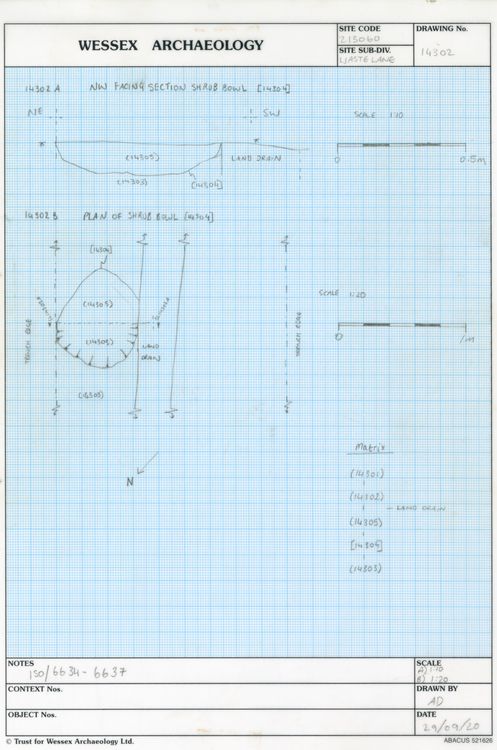 WESSEX ARCHAEOLOGY
SITE CODE
213060
SITE SUB-DIV.
WASTE LANE
DRAWING No.
14302
14302 A NW FACING SECTION SHRUB BOWL [14304]
NE
SW
SCALE 1:10
(14305)
LAND DRAIN
(14303)
[14304]
0 0.5m
14302 B PLAN OF SHRUB BOWL [14304]
[14304]
(14305)
(14303)
TRENCH EDGE
LAND
DRAIN
TRENCH EDGE
(14303)
SCALE 1:20
0 1m
N
Matrix
(14301)
(14302)
- LAND DRAIN
(14305)
[14304]
(14303)
NOTES
ISO/6634 - 6637
CONTEXT Nos.
OBJECT Nos.
SCALE
A) 1:10
B) 1:20
DRAWN BY
AD
DATE
29/09/20
© Trust for Wessex Archaeology Ltd.
ABACUS 521626